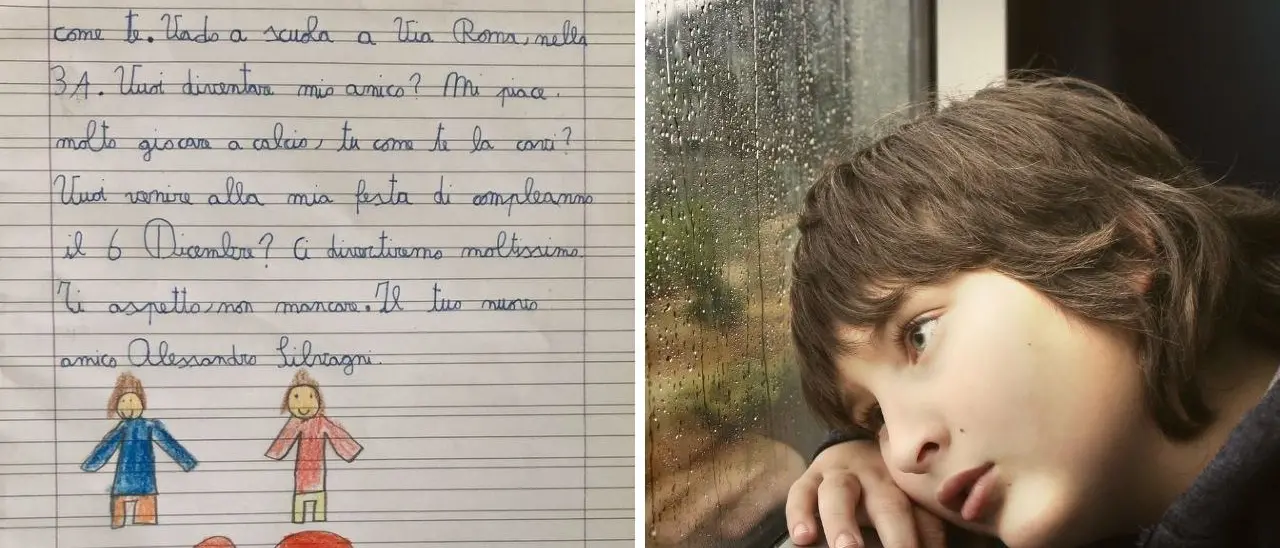 come te. Vado a scuola a Via Roma, nella
3A. Vuoi diventare mio amico? Mi piace
molto giocare a calcio, tu come te la cavi?
Vuoi venire alla mia festa di compleanno
il 6 Dicembre? Ci divertiremo moltissimo.
Ti aspetto, non mancare. Il tuo nuovo
amico Alessandro Silvagni.